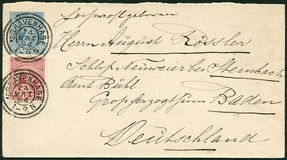 Hochwohlgeboren
Herrn August Rössler
Schloss Neuweier bei Steinbach
Amt Bühl
Grossherzogthum Baden
Deutschland
'S GRAVENHAGE
'S GRAVENHAGE